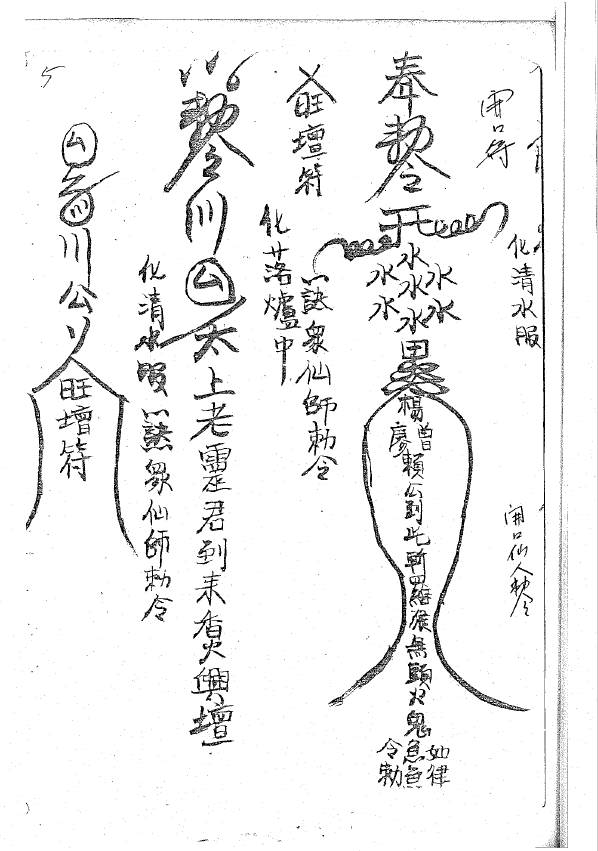 開口符
化清水服
開口仙人勅令
奉勅令
水
水水水
水水水
楊曾
廖賴公到此斬羅猴無頭火鬼急急如律令勅
旺壇符
化落爐中
衆仙師勅令
勅令
太上老靈君到來香火興壇
化清水服
衆仙師勅令
5
公
川公
旺壇符